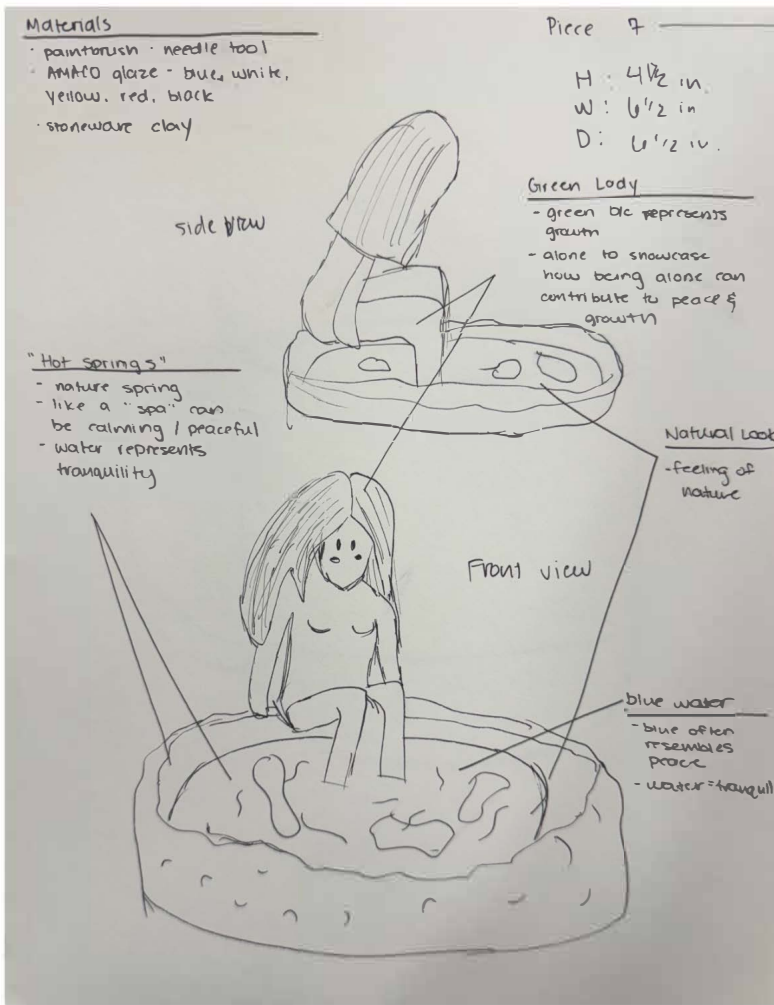 Materials
· paintbrush · needle tool
· AMACO glaze - blue, white,
yellow, red, black
· stoneware clay
Piece 7
H: 4 1/2 in.
W: 6 1/2 in
D: 6 1/2 in.
side view
Green Lady
- green b/c represents
growth
- alone to showcase
how being alone can
contribute to peace &
growth
"Hot Springs"
- nature spring
- like a "spa" can
be calming / peaceful
- water represents
tranquility
Natural Look
- feeling of
nature
Front view
blue water
- blue often
resembles
peace
- water = tranquil